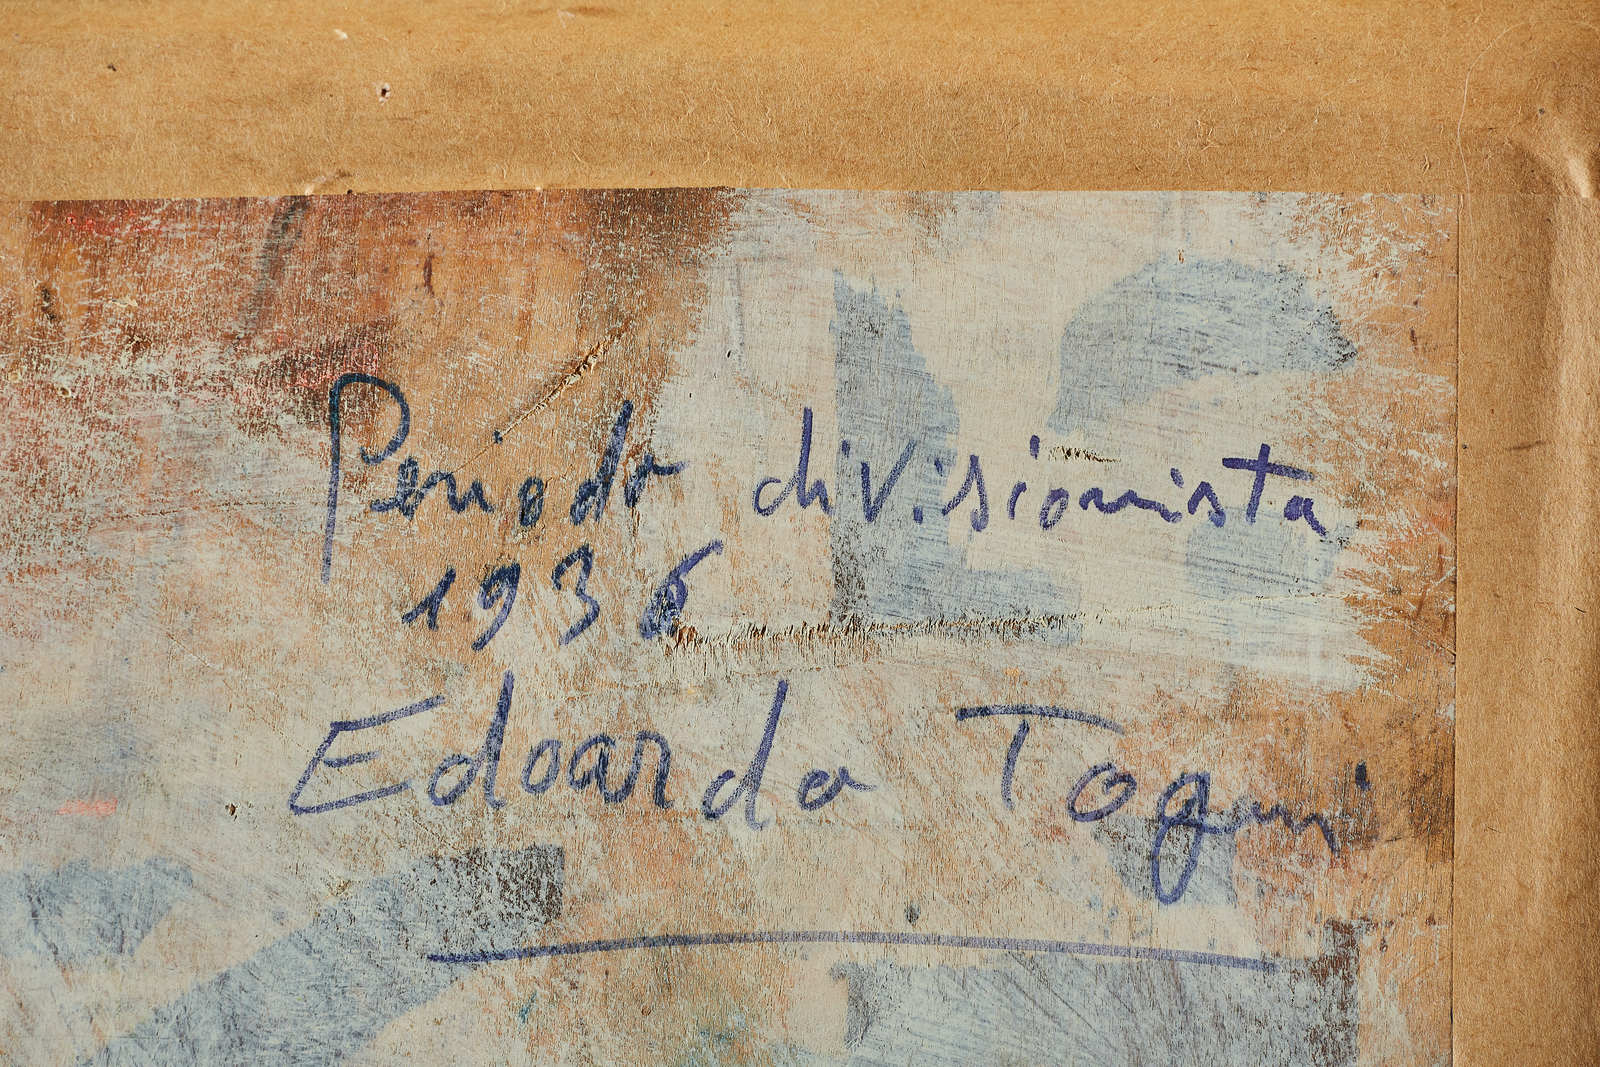 Periodo divisionista
1936
Edoardo Togni